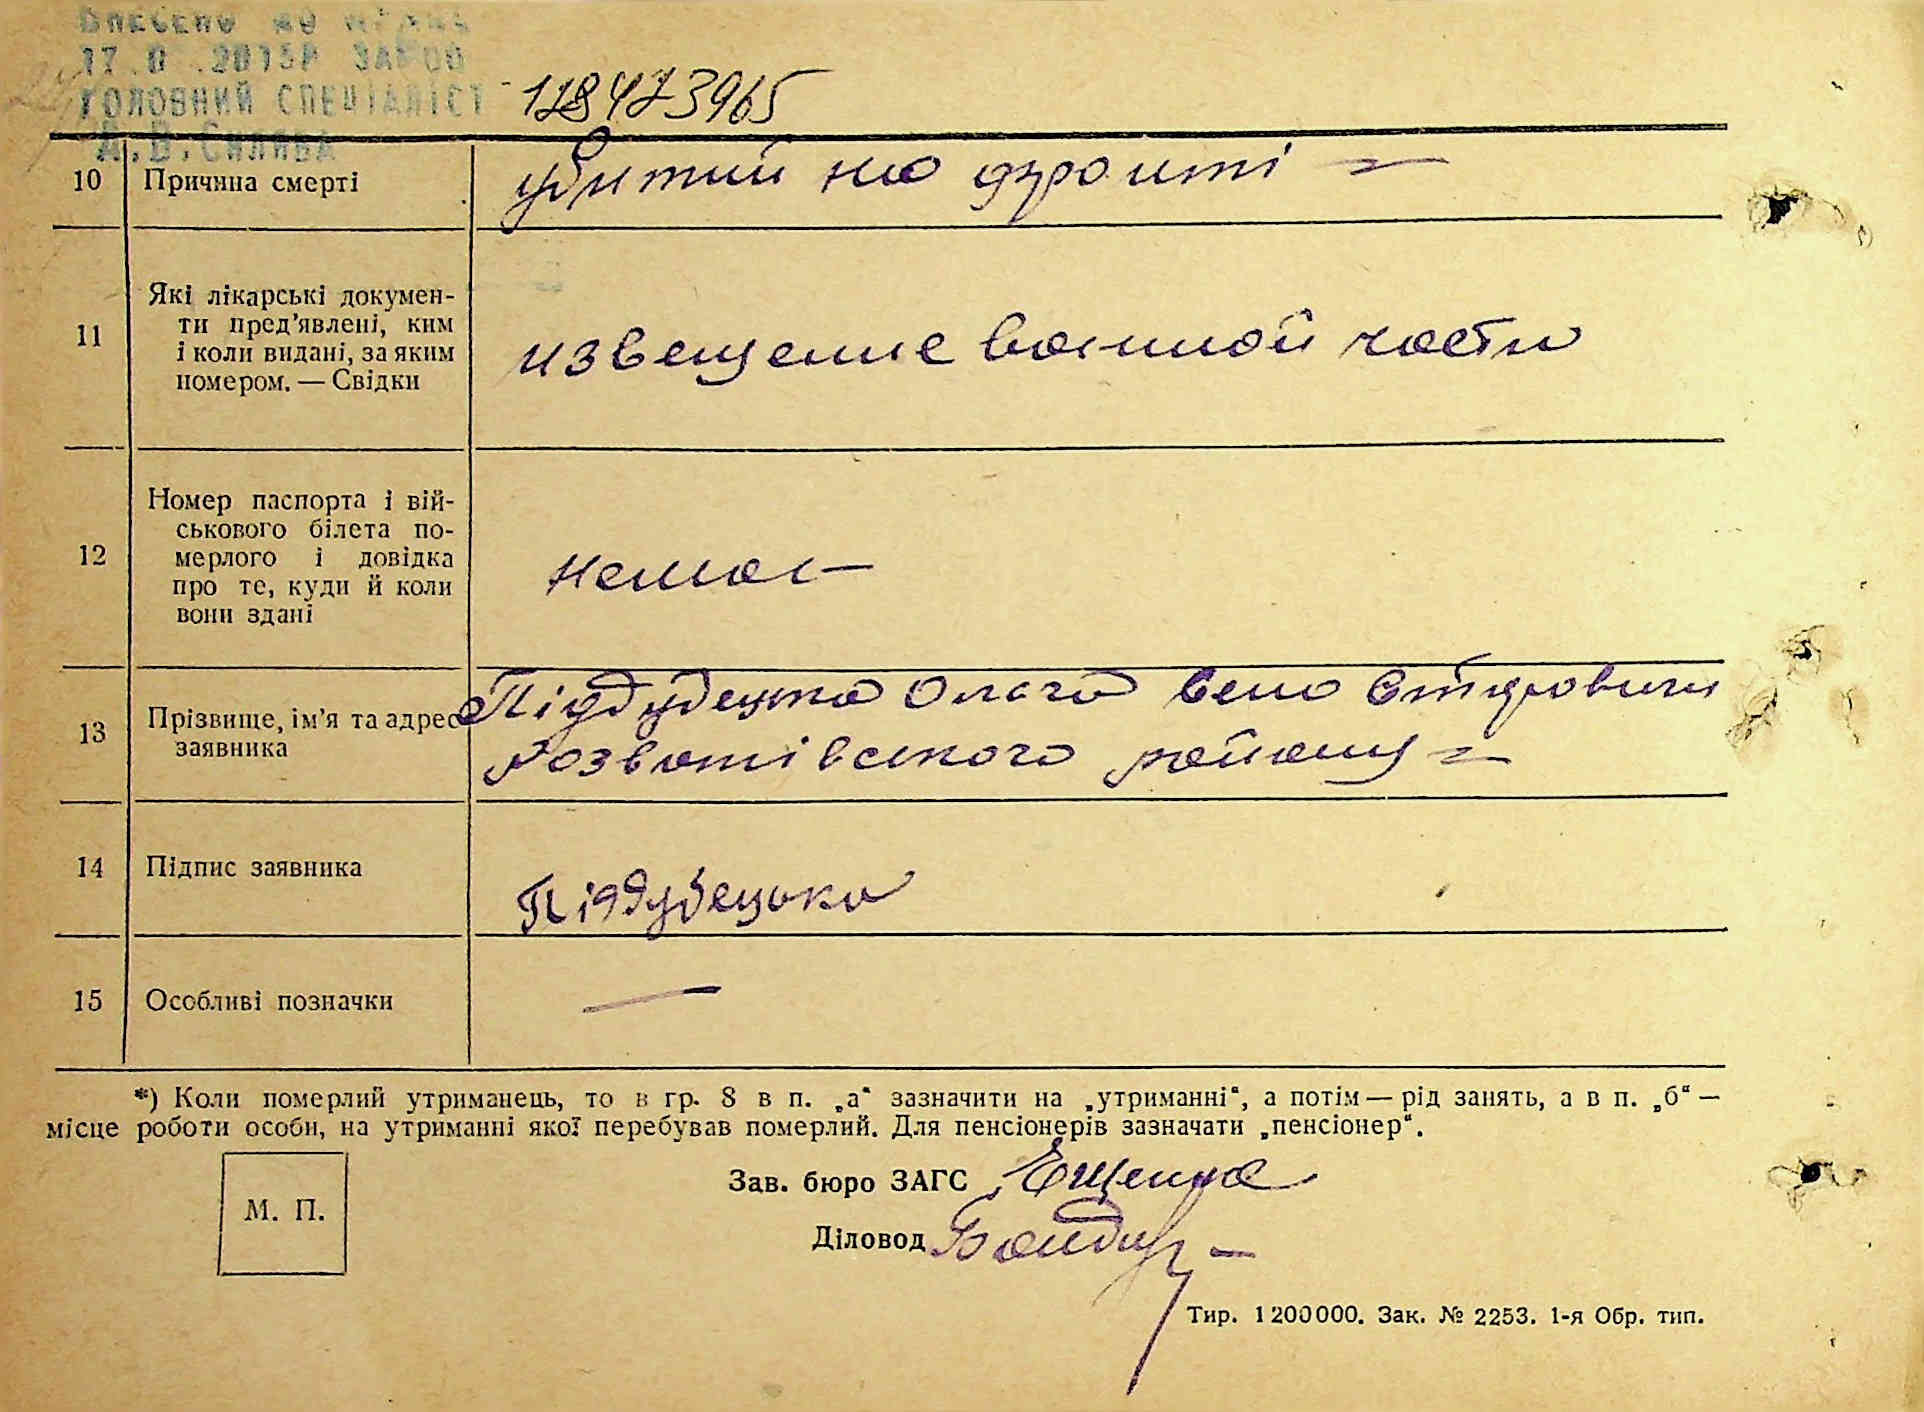 ВНЕСЕНО ДО
ГОЛОВНИЙ СПЕЦІАЛІСТ
12847 3965
10 Причина смерті
убитий на фронті
11 Які лікарські докумен-
ти пред'явлені, ким
і коли видані, за яким
номером. — Свідки
извещение военной части
12 Номер паспорта і вій-
ськового білета по-
мерлого і довідка
про те, куди й коли
вони здані
немає —
13 Прізвище, ім'я та адрес
заявника
Піддубецька Ольга село
Розважівського району
14 Підпис заявника
Піддубецька
15 Особливі позначки
—
*) Коли померлий утриманець, то в гр. 8 в п. „а“ зазначити на „утриманні“, а потім — рід занять, а в п. „б“ —
місце роботи особи, на утриманні якої перебував померлий. Для пенсіонерів зазначати „пенсіонер“.
М. П.
Зав. бюро ЗАГС
Діловод
Тир. 1 200 000. Зак. № 2253. 1-я Обр. тип.